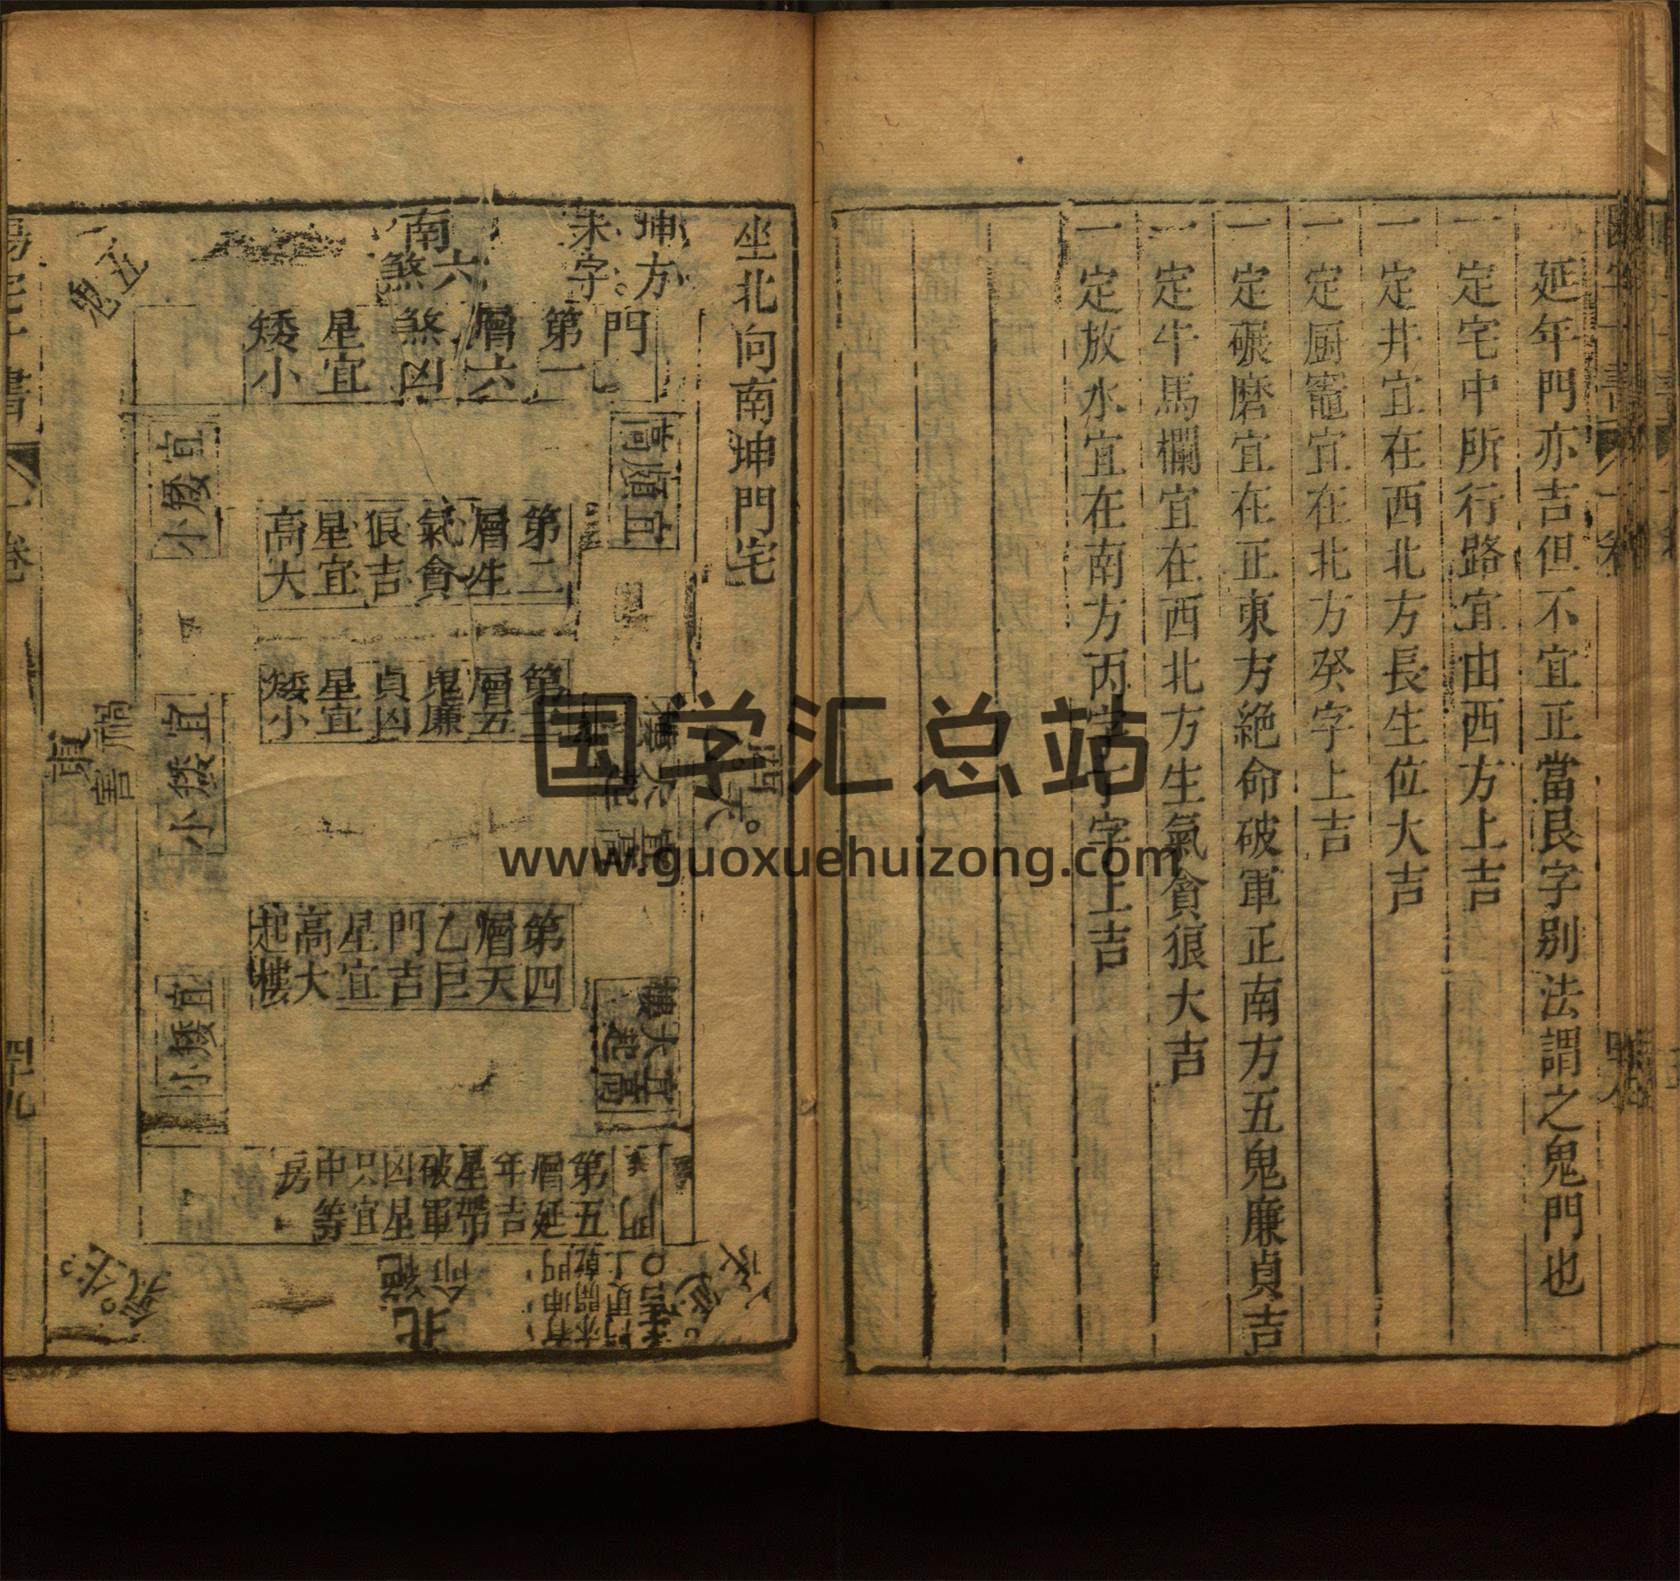 延年門亦吉但不宜正當艮字別法謂之鬼門也
一定宅中所行行路宜由西方上吉
一定井宜在西北方長生位大吉
一定厨竈宜在北方癸字上吉
一定碾磨宜在正東方絶命破軍正南方五鬼廉貞吉
一定牛馬欄宜在西北方生氣貪狼大吉
一定放水宜在南方丙字丁字上吉
坐北向南坤門宅
坤方
未字
南
六煞
五鬼
門
第一
層六
煞凶
星宜
矮小
宜頗高
宜矮小
第二
層生
氣貪
狼吉
星宜
高大
第三
層五
鬼廉
貞凶
星宜
矮小
宜矮小
禍害
東
第四
層天
乙巨
門吉
星宜
高大
起樓
宜高大起樓
宜矮小
門
第五
層延
年吉
星帶
破軍
凶星
只宜
中等
房
絕命
北
陽宅十書
一卷
四十九
国学汇总站
www.guoxuehuizong.com